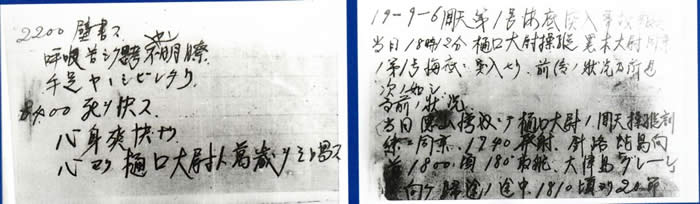 2200 壁書ス
呼吸苦シク思考稍不明瞭
手足ヤヽシビレタリ
0400 死ヲ決ス
心身爽快ナリ
心ヨリ樋口大尉ト萬歳ヲ三唱ス
19-9-6 回天第1号海底突入
当日18時12分樋口大尉操縦黒木大尉同乗
ノ第1号海底ニ突入セリ 前後ノ状況及所見
次ノ如シ
事前ノ状況
当日樋口大尉ノ回天操縦訓
練ニ同乗 1740発射 針路蛙島向
首 1800 頃180取舵 大津島クレーン
ニ向ケ帰途ノ途中 1810頃 20節